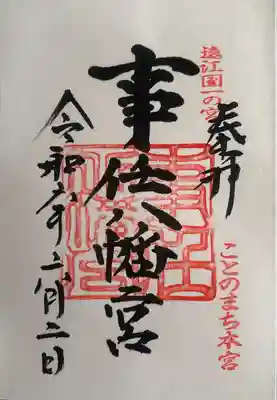 奉拝
遠江国一の宮
事任八幡宮
ことのまち本宮
令和六年二月二日